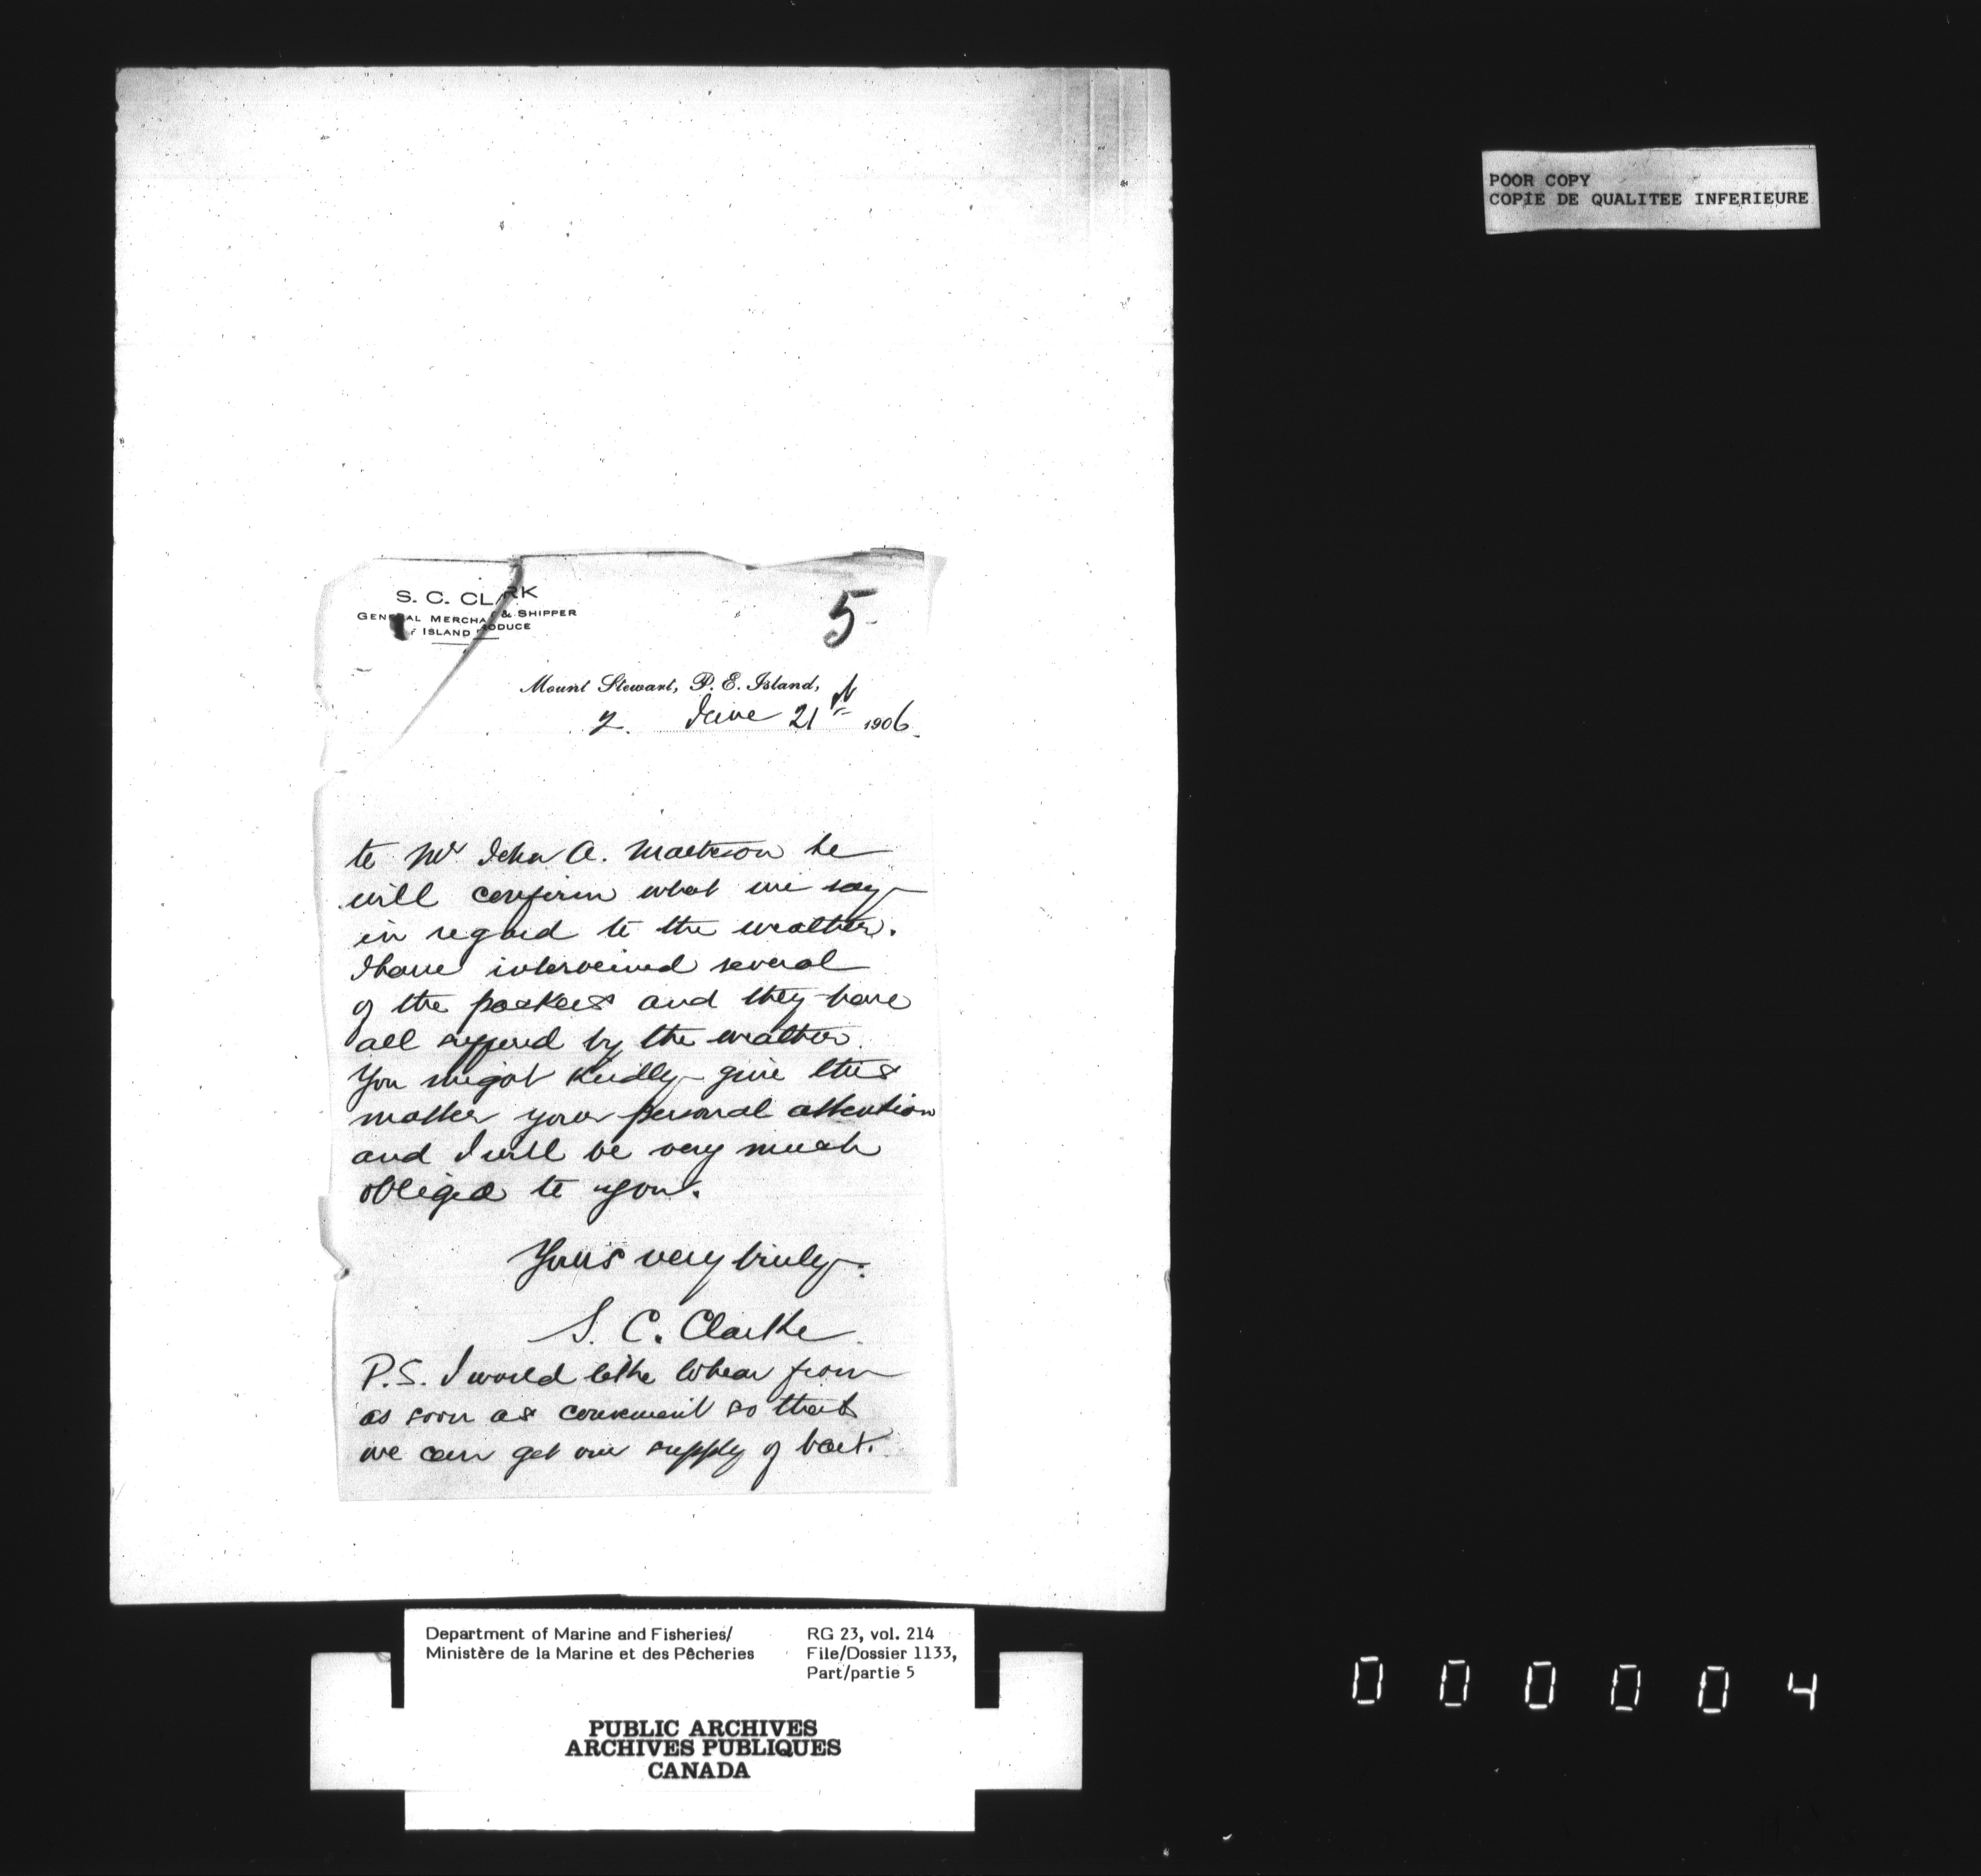 POOR COPY
COPIE DE QUALITEE INFERIEURE
S. C. CLARK
GENERAL MERCHA & SHIPPER
ISLAND PRODUCE
5
Mount Stewart, P. E. Island,
2. June 21st 1906.
to Mr John A. Matheson he
will confirm what we say
in regard to the weather.
I have interveiwed several
of the packers and they have
all suffered by the weather.
You might kindly give this
matter your personal attention
and I will be very much
obliged to you.
Yours very truly.
S. C. Clarke
P.S. I would like to hear from
as soon as convenient so that
we can get our supply of bait.
Department of Marine and Fisheries/
Ministère de la Marine et des Pêcheries
RG 23, vol. 214
File/Dossier 1133,
Part/partie 5
PUBLIC ARCHIVES
ARCHIVES PUBLIQUES
CANADA
000004